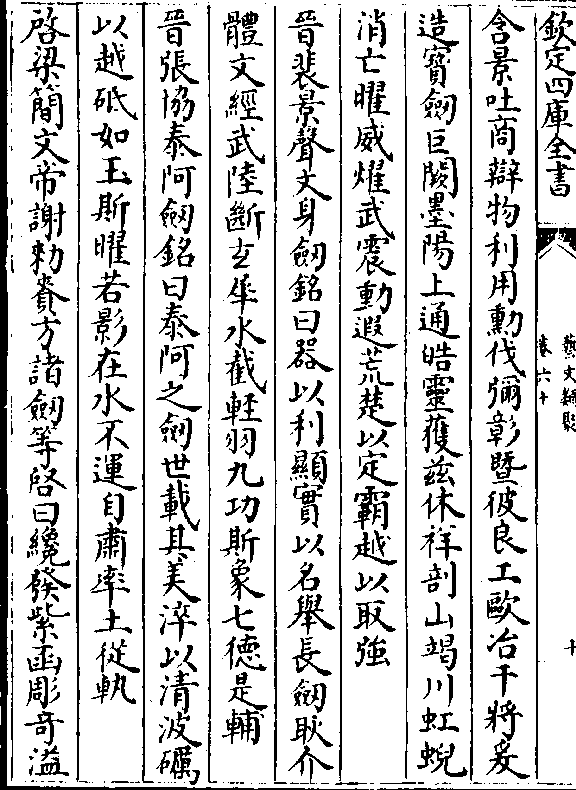 欽定四庫全書
藝文類聚
卷六十
十
含景吐商辯物利用勳伐彌彰暨彼良工歐冶干將爰
造寳劒巨闕墨陽上通皓靈獲兹休祥剖山竭川虹蜺
消亡曜威燿武震動遐荒楚以定霸越以取強
晉裴景聲文身劒銘曰器以利顯實以名舉長劒耿介
體文經武陸斷玄犀水截軽羽九功斯象七德是輔
晉張協泰阿劒銘曰泰阿之劒世載其美淬以清波礪
以越砥如玉斯曜若影在水不運自肅率土從軌
啓梁簡文帝謝勅賚方諸劒等啓曰纔發紫函彫竒溢